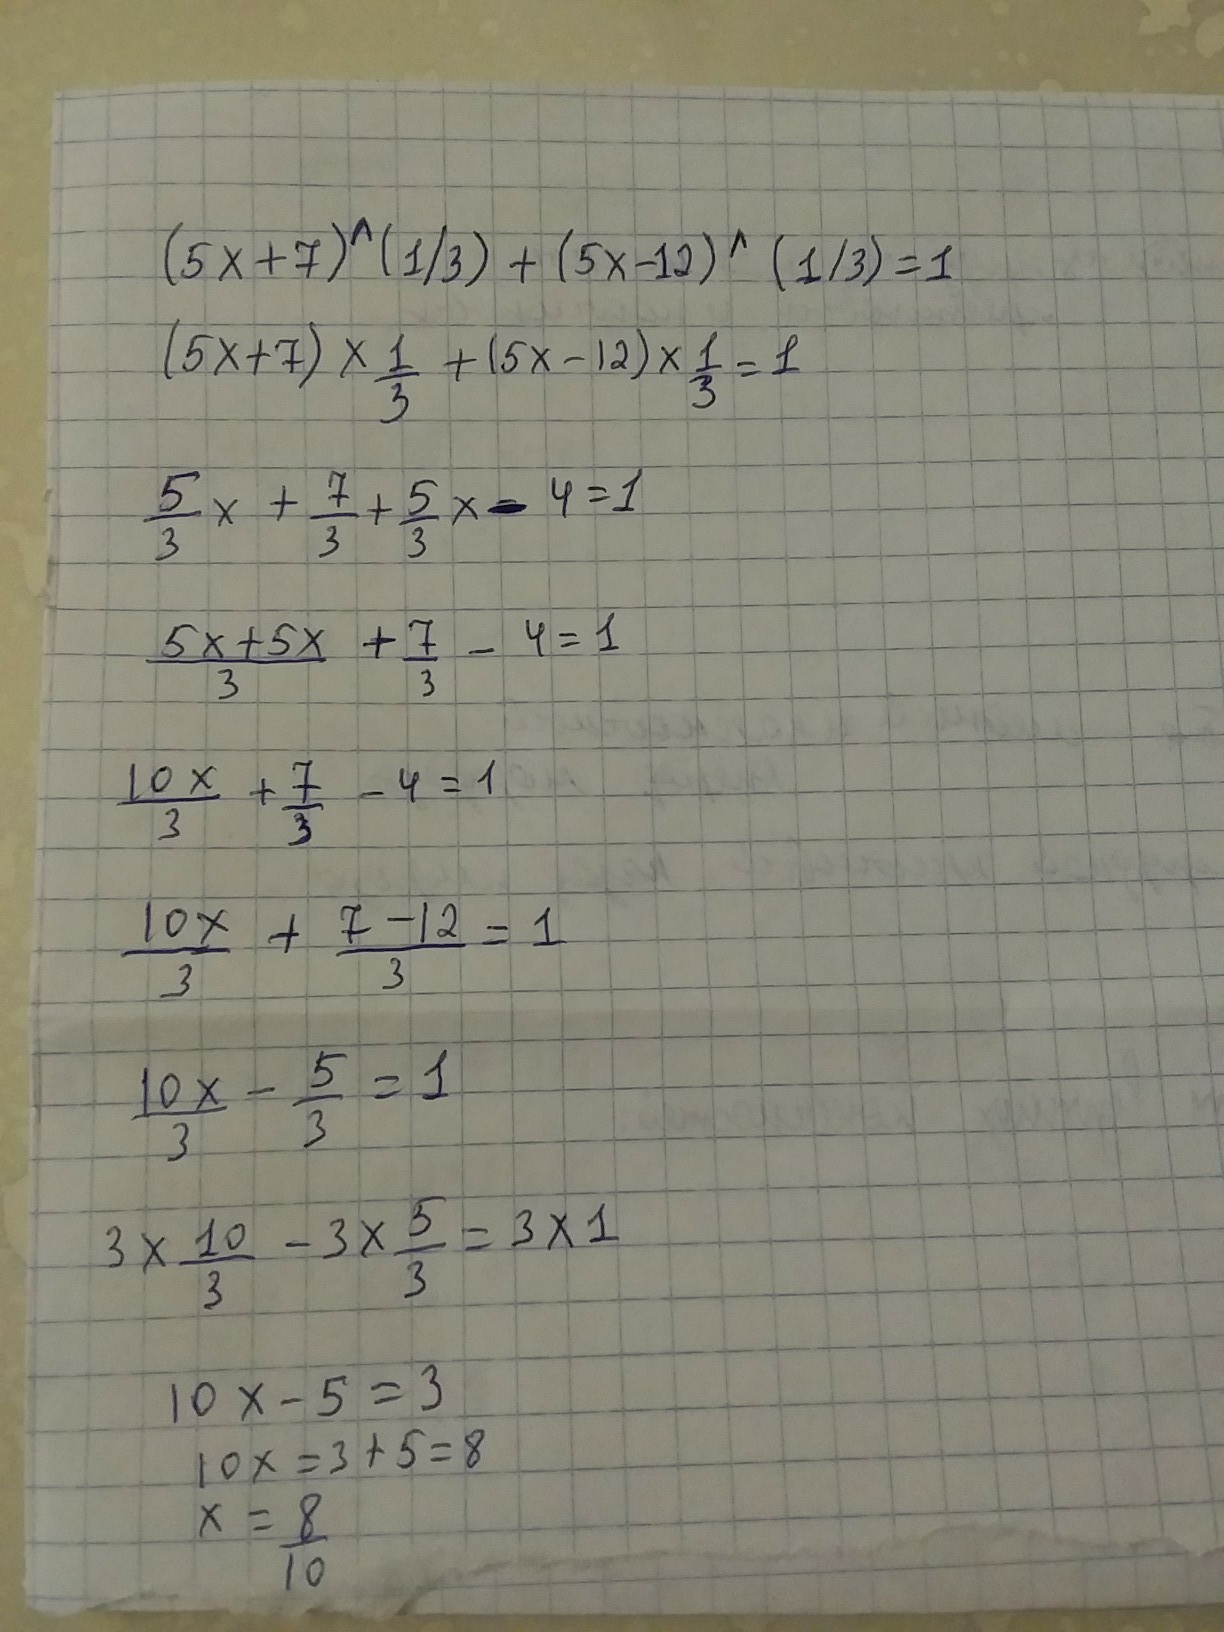 (5x+7)^(1/3) + (5x-12)^ (1/3) = 1
(5x+7) × 1/3 + (5x-12) × 1/3 = 1
5/3 x + 7/3 + 5/3 x - 4 = 1
5x+5x/3 + 7/3 - 4 = 1
10x/3 + 7/3 - 4 = 1
10x/3 + 7-12/3 = 1
10x/3 - 5/3 = 1
3 × 10/3 - 3 × 5/3 = 3 × 1
10x - 5 = 3
10x = 3 + 5 = 8
x = 8/10